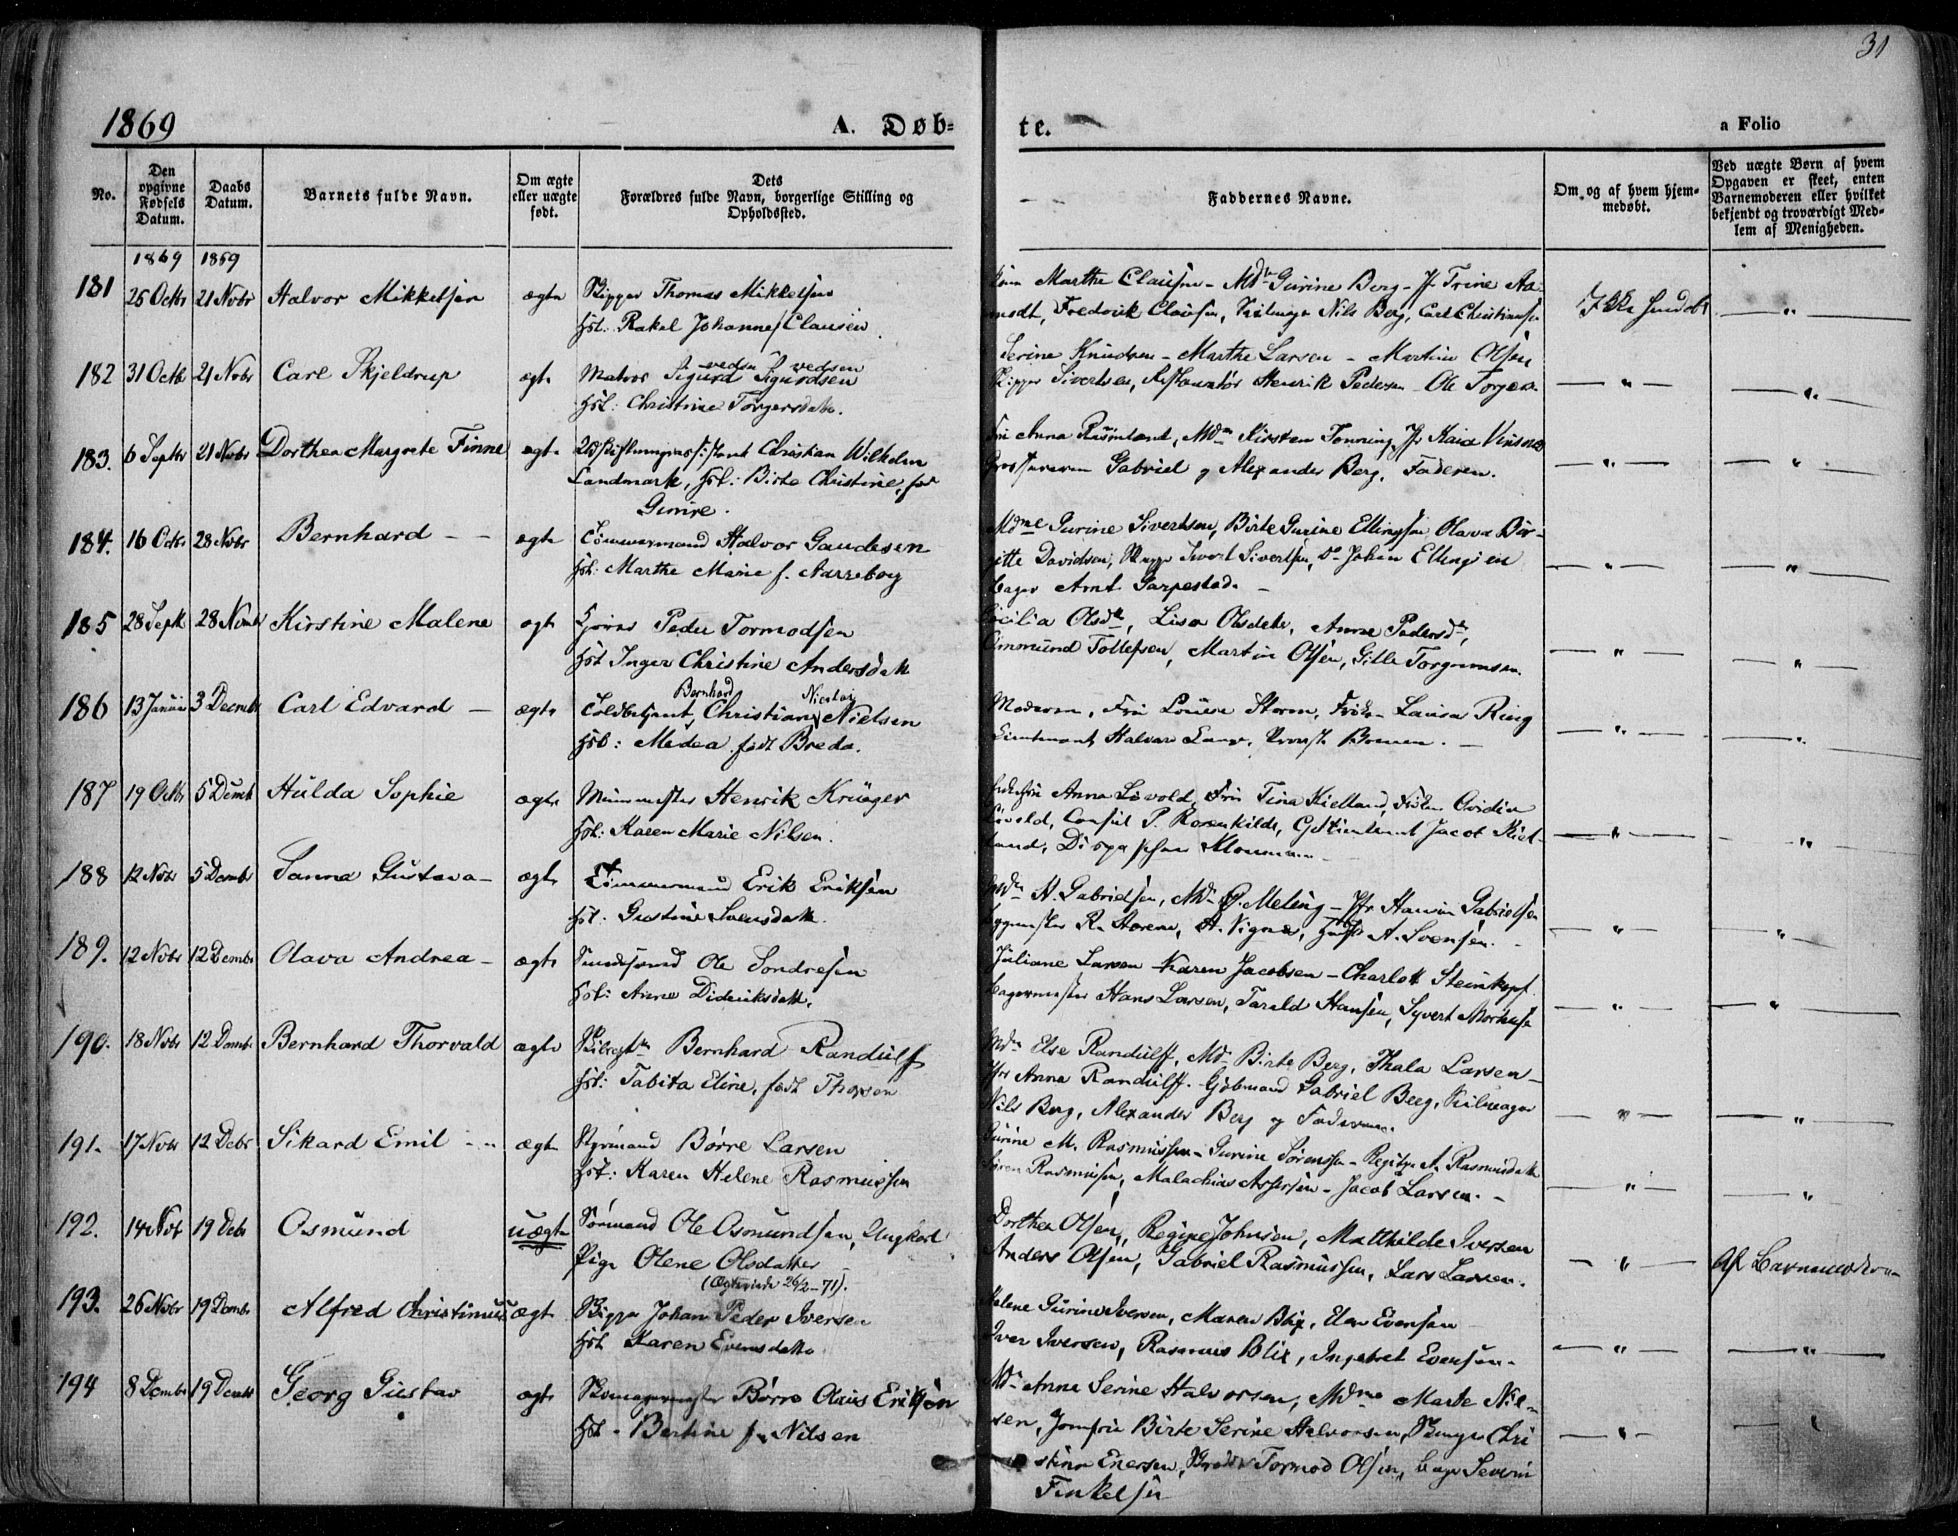 31
1869 A. Døb- te. a Folio
No.
Den opgivne Fødsels Datum.
Daabs Datum.
Barnets fulde Navn.
Om ægte eller uægte født.
Dets Forældres fulde Navn, borgerlige Stilling og Opholdssted.
Faddernes Navne.
Om og af hvem hjem-
medøbt.
Ved uægte Børn af hvem
Opgaven er skeet, enten
Barnemoderen eller hvilket
bekjendt og troværdigt Med-
lem af Menigheden.
1869 1869
181 25 Octbr 21 Novbr Halvor Mikkelsen ægte Skipper Thomas Mikkelsen
Hst: Rakel Johanne Clausen.
Marthe Clausen - Md Gurine Berg - Jf Trine Aa-
modt, Fredrik Clausen, Nils Berg, Carl Christiansen
Ikke hmdøbt - " -
182 31 Octb 21 Novbr Carl Skjeldrup ægte Matros Sigurd Sigurdsen
vedsen vedsen
Hst: Christine Torgersdatt.
Serine Knudsen - Marthe Larsen - Martin Olsen
Skipper Sivertsen, Henrik Pedersen - Ole Torgers.
- " - - " -
183. 6 Septbr 21 Novbr Dorthea Margrete Finne ægte Christian Wilhelm
Landmark, Hst: Birte Christine, fød
Anna Rosenlund, Mdm Kirsten Tonning, Jf Kaia
Gabriel og Alexander Berg, Faderen.
- " - - " -
184. 16 Octbr 28 Novbr Bernhard - - ægte Tømmermand Halvor Gaudesen
Hst: Marthe Marie f. Aarreberg
Mdme Gurine Sivertsen, Birte Gurine Ellingsen Olava Bir-
gitte Davidsen, Sivert Sivertsen, Do Johan Ellingsen
Bager Arnt Garpestad. -
- " - - " -
185 28 Septb 28 Novbr Kirstine Malene ægt Peder Tormodsen
Hst Inger Christine Andersdatt
Cecilia Olsdtr, Lisa Olsdatr, Anne Pedersdtr,
Ommund Tollefsen, Martin Olsen, Gitle Torgrimsen.
- " - - " -
186 13 Januar 3 Decmbr Carl Edvard - ægte Toldbetjent, Christian Nielsen
Bernhard Nicolai
Hst: Medea født Breda.
Moderen, Fru Louise Storm, Frøken Laura Ring
Lieutenant Halvor Lang, Provst Bomen. -
- " - - " -
187 19 Octbr 5 Decmb Hulda Sophie ægte Muurmester Henrik Krüeger
Hst: Karen Marie Nilsen.
Anna Løvold, Fru Tina Kielland, Frøken Ovidia
Løvold, Consul P. Rosenkilde, Jacob Kiel-
land,
- " - - " -
188 12 Novbr 5 Decmbr Sanna Gustava - ægte Tømmermand Erik Eriksen
Hst: Gustine Svensdatt.
Mdm N. Gabrielsen, Md G. Meling - Jfr Hanna Gabrielsen
R. Horene, A. Vignes, A. Svensen. -
- " - - " -
189. 12 Novbr 12 Decmbr Olava Andrea - ægte Ole Sondresen
Hst: Anne Didriksdatt.
Juliane Larsen - Karen Jacobsen - Charlott Steinkopf.
Bagermester Hans Larsen, Tarald Hansen, Syvert Mortensen
- " - - " -
190. 18 Novbr 12 Decmbr Bernhard Thorvald ægte Bernhard Randulff
Hst: Tabita Eline, født Thorsen
Mdm Else Randulff, Md Birte Berg, Thala Larsen -
Jfr Anna Randulff. Gabriel Berg,
Nils Berg, Alexander Berg og Faderen.
- " - - " -
191. 17 Novbr 12 Debr Sikard Emil - " ægte Styrmand Børre Larsen
Hst: Karen Helene Rasmussen
Gurine M. Rasmussen - Gurine Sørensen - Regitze A. Rasmusdatt
Søren Rasmusen, Malachias Assersen - Jacob Larsen. -
- " - - " -
192. 14 Novb 19 Debr Osmund uægte Sømand Ole Osmundsen, Ungkarl
Pige Olene Olsdatter
(Ægteviede 26/2-71).
Dorthea Olsen, Regine Johnsen, Matthilde Iversen
Anders Olsen, Gabriel Rasmussen, Lars Larsen.
- " - Af Barnemoderen
193. 26 Novbr 19 Decmbr Alfred Christinius ægte Skipper Johan Peder Iversen
Hst Karen Evensdatt.
Malene Gurine Iversen, Maren Blix, Elen Evensen
Iver Iversen, Rasmus Blix, Ingebret Evensen.
- " - - " -
194 8 Decmbr 19 Decmbr Georg Gustav ægte Skomagermester Børre Olaus Eriksen
Hst - Bertine f. Nilsen
Mdm Anna Serine Halvorsen, Mdme Marte Nil-
sen, Jomfru Birte Serine Halvorsen, Chri
stina Enersen, Tormod Olsen, Severin
Finkelsen
- " -